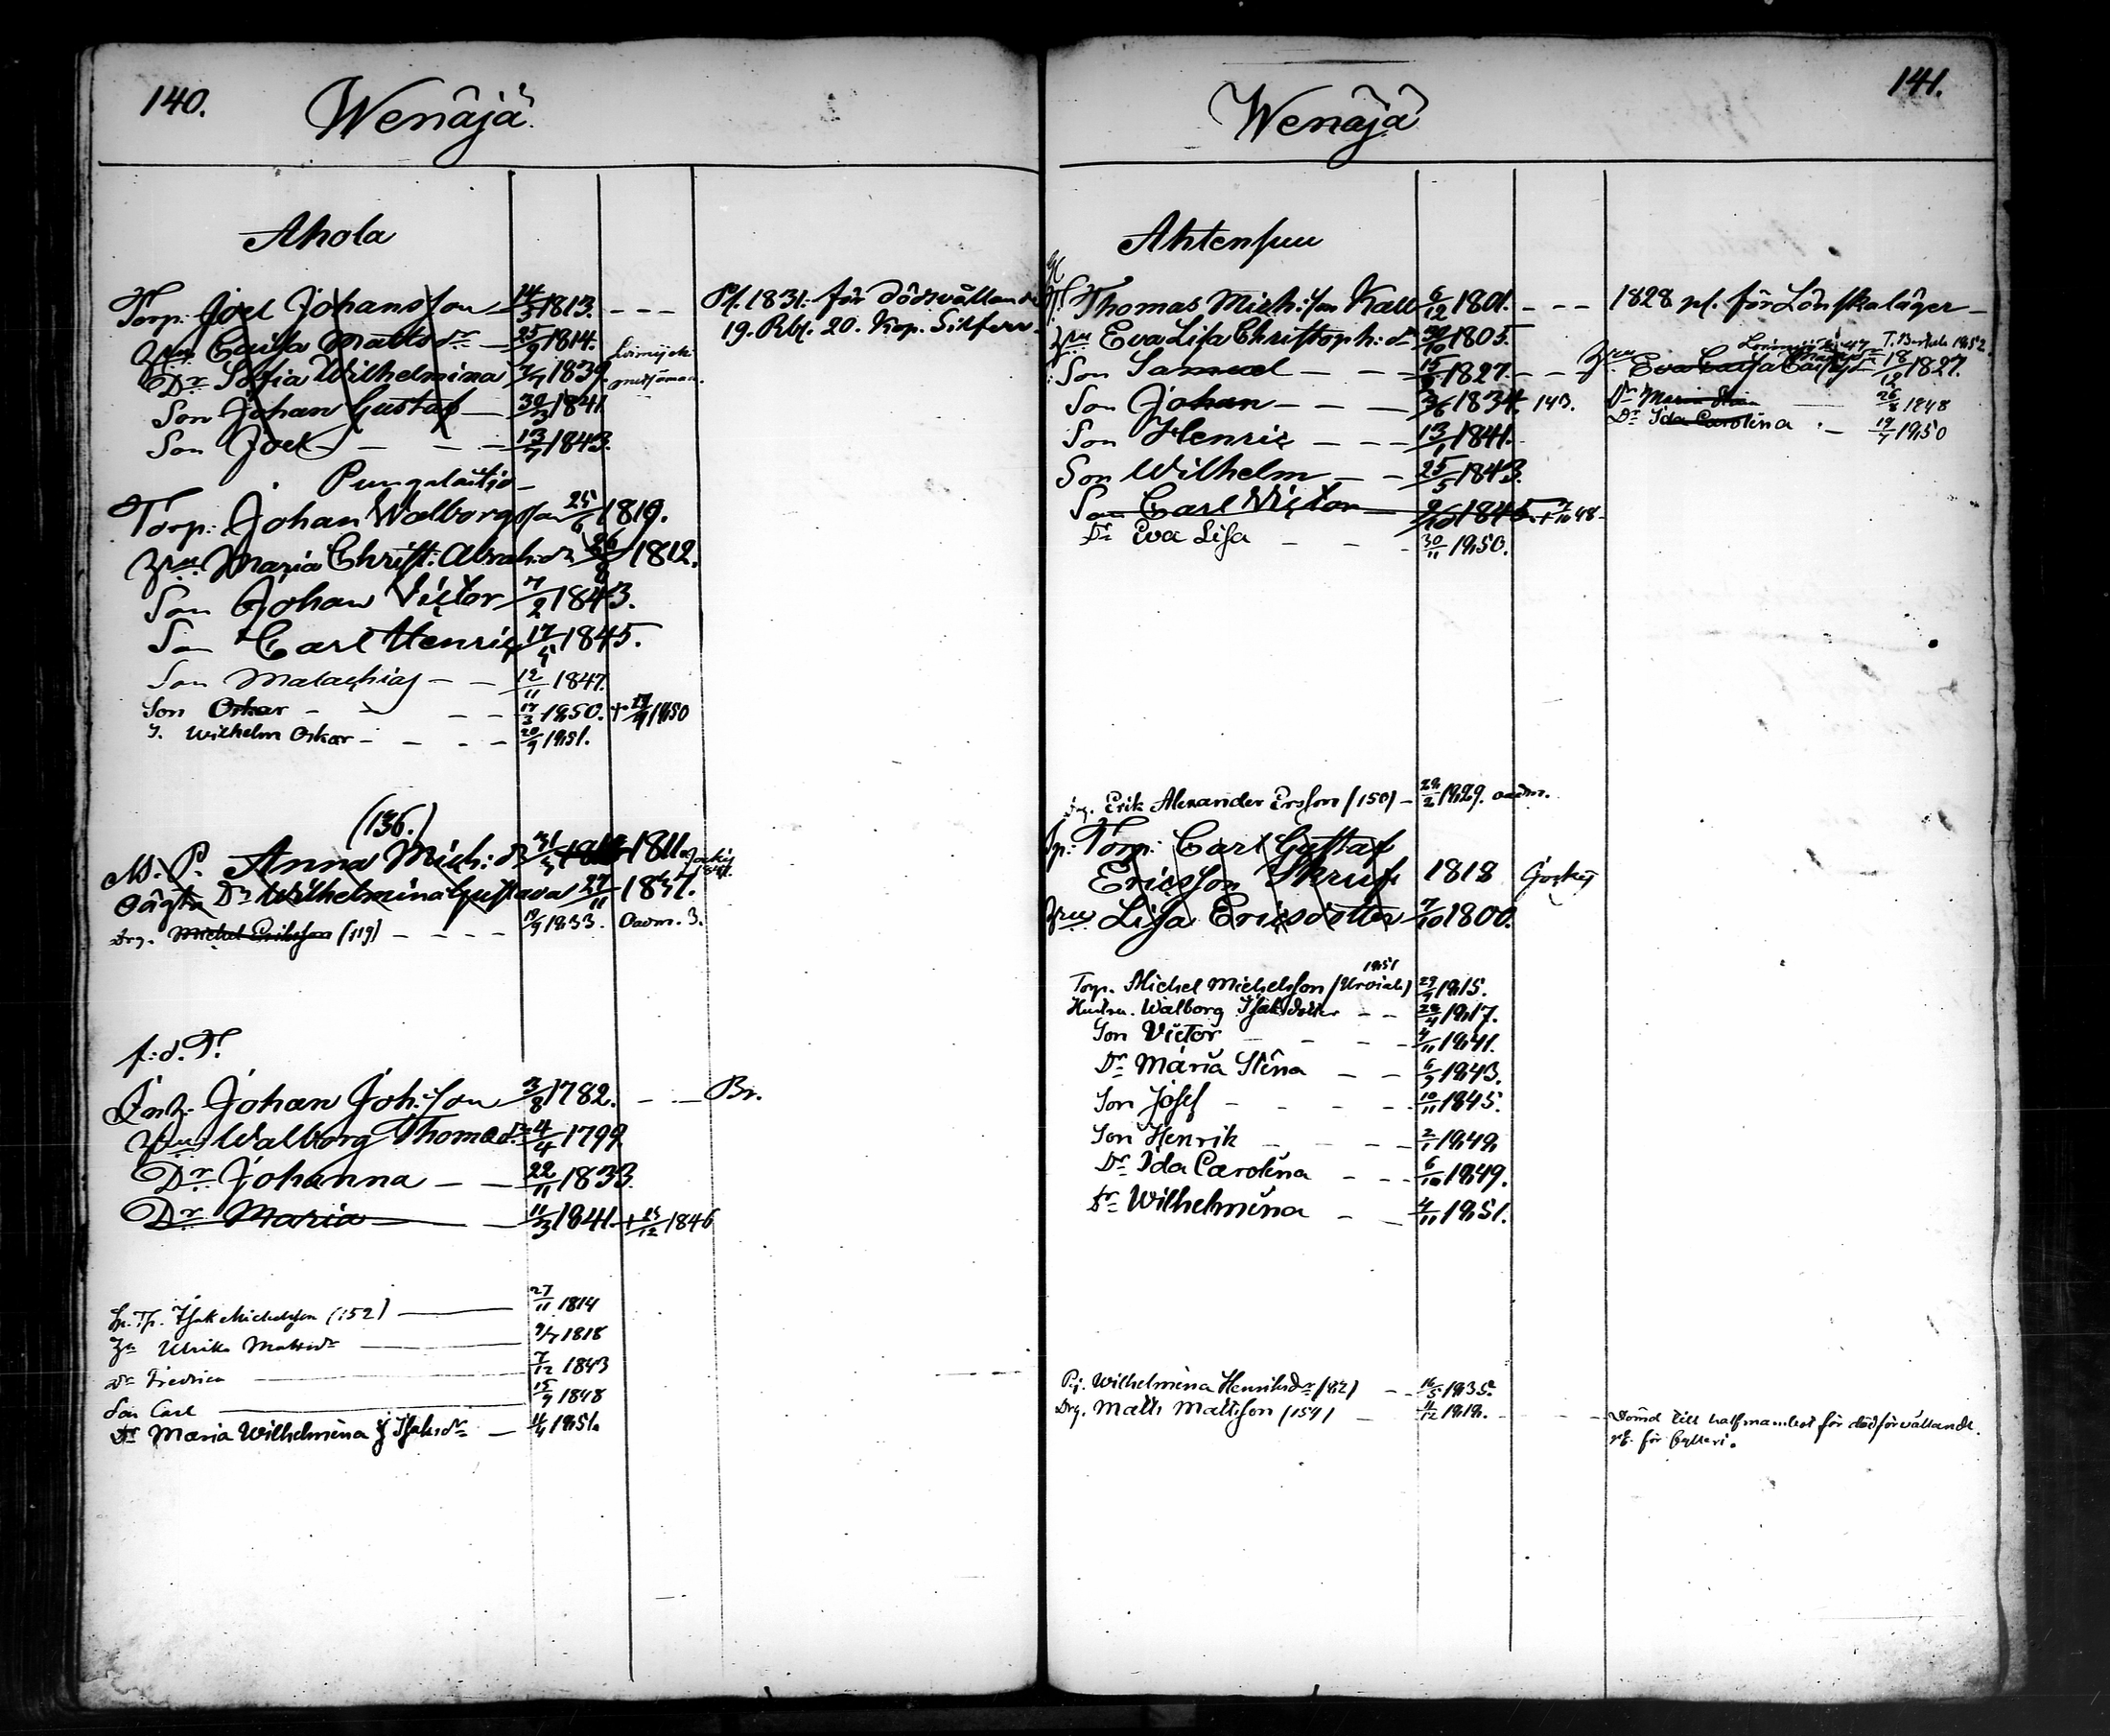 140.
Wenäjä
Ahola
Torp: Joel Johansson 14/3 1813. - - - Pl. 1831 för dödsvållande
Hru Caisa Mattsdr 25/9 1814. 19. Rbl. 20. Kop. Silfver.
Dr Sofia Wilhelmina 7/7 1839.
Son Johan Gustaf 30/3 1841.
Son Joel - - - 13/7 1843.
Pungalaitio
Torp: Johan Walborgsson 25/6 1819.
Hru Maria Christ: Abrah:dr 26/8 1812.
Son Johan Victor 7/2 1843.
Son Carl Henric 17/5 1845.
Son Malachias - - 12/11 1847.
Son Oskar - - - 17/3 1850. + 1850
S. Wilhelm Oskar - - - 20/9 1851.
(136.)
M. P. Anna Mich:dr 1811.
Oägta Dr Wilhelmina Gustava 27/11 1837.
Drg. Michel Eriksson (119) - - - 19/9 1833. Oadm. 3.
f:d. T.
Inh. Johan Joh:son 3/8 1782. - - Br.
Hru Walborg Thomasdr 4/4 1799.
Dr Johanna - - 22/11 1833.
Dr Maria - 11/3 1841. + 25/12 1846
Sp. Tp. Isak Michelsson (152) 27/11 1814
Hu Ulrika Matsdr 9/7 1818
Dr Fredrica 7/12 1843
Son Carl 15/9 1848
Dr Maria Wilhelmina Isaksdr 11/4 1851.
141.
Wenäjä
Ahtensuu
Thomas Mich:son Kall 6/12 1801. - - - 1828 pl. för Lönskaläger -
Hru Eva Lisa Christoph:dr 30/10 1805.
Son Samuel - - - 15/9 1827. - - Hru Eva Caisa 18/12 1827.
Son Johan - - - 3/6 1834. 143. Dr Maria 26/8 1848
Son Henric - - - 13/1 1841. Dr Ida Carolina - 19/7 1850
Son Wilhelm - - 25/5 1843.
Son Carl Victor 9/10 1845. + 7/10 48.
Dr Eva Lisa - - - 30/11 1850.
Drg. Erik Alexander Ersson (150) - 29/2 1829. oadm.
Sp: Torp: Carl Gustaf
Ericsson Skruf 1818
Hru Lisa Ericsdotter 7/10 1800.
1851
Torp. Michel Michelsson 29/9 1815.
Hustru. Walborg Isaksdotter - - 28/4 1817.
Son Victor - - 4/11 1841.
Dr Maria Stina - - 6/9 1843.
Son Josef - - - 10/11 1845.
Son Henrik - - 2/1 1848.
Dr Ida Carolina - - 6/10 1849.
Dr Wilhelmina - - 4/11 1851.
Pig. Wilhelmina Henriksdr (82) - - 16/5 1835.
Drg. Matts Mattsson (154) - 11/12 1818. - - - Dömd till halfmanbot för dödförvållande.
pl. för fylleri.